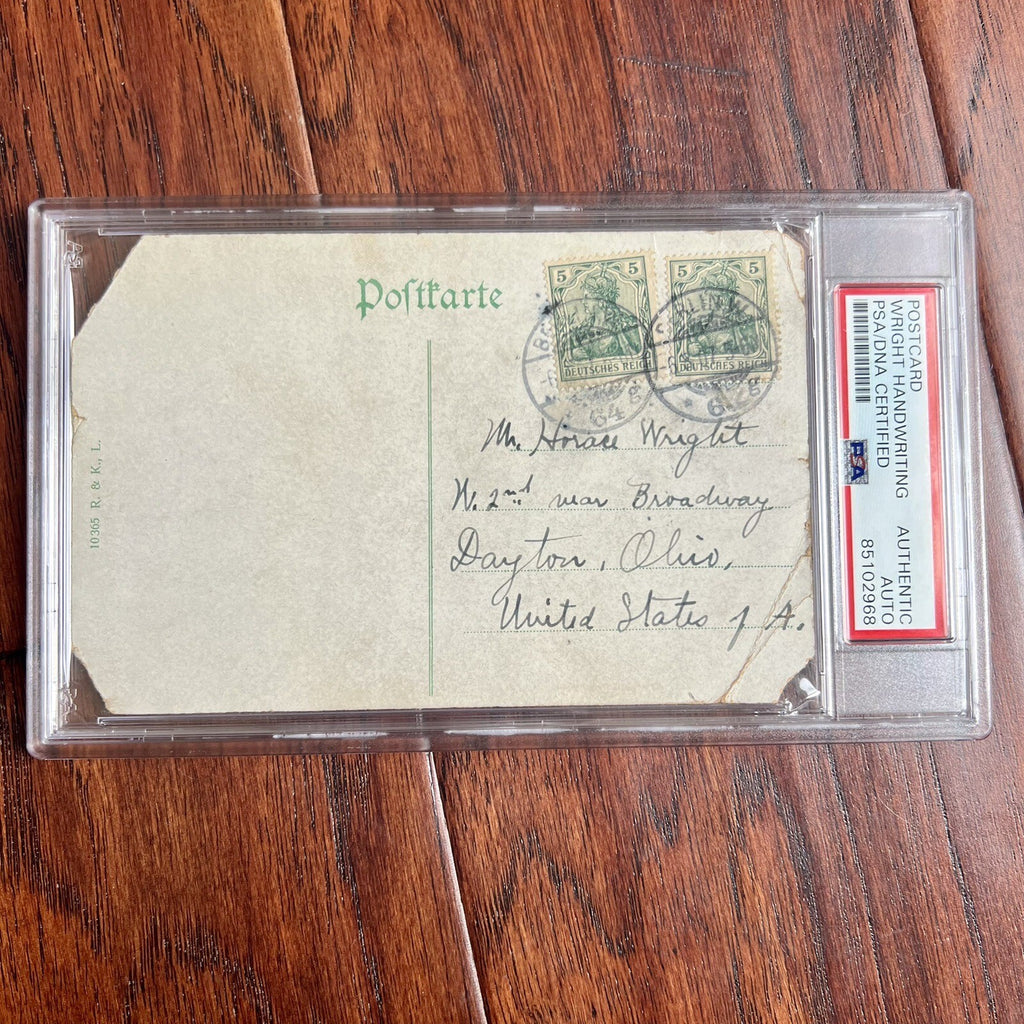 Postkarte
5 5
DEUTSCHES REICH
5 5
DEUTSCHES REICH
64
Mr. Horace Wright
W. 2nd near Broadway
Dayton, Ohio,
United States of A.
10365 R. & K., L.
POSTCARD
WRIGHT HANDWRITING AUTHENTIC
PSA/DNA CERTIFIED AUTO
85102968
PSA